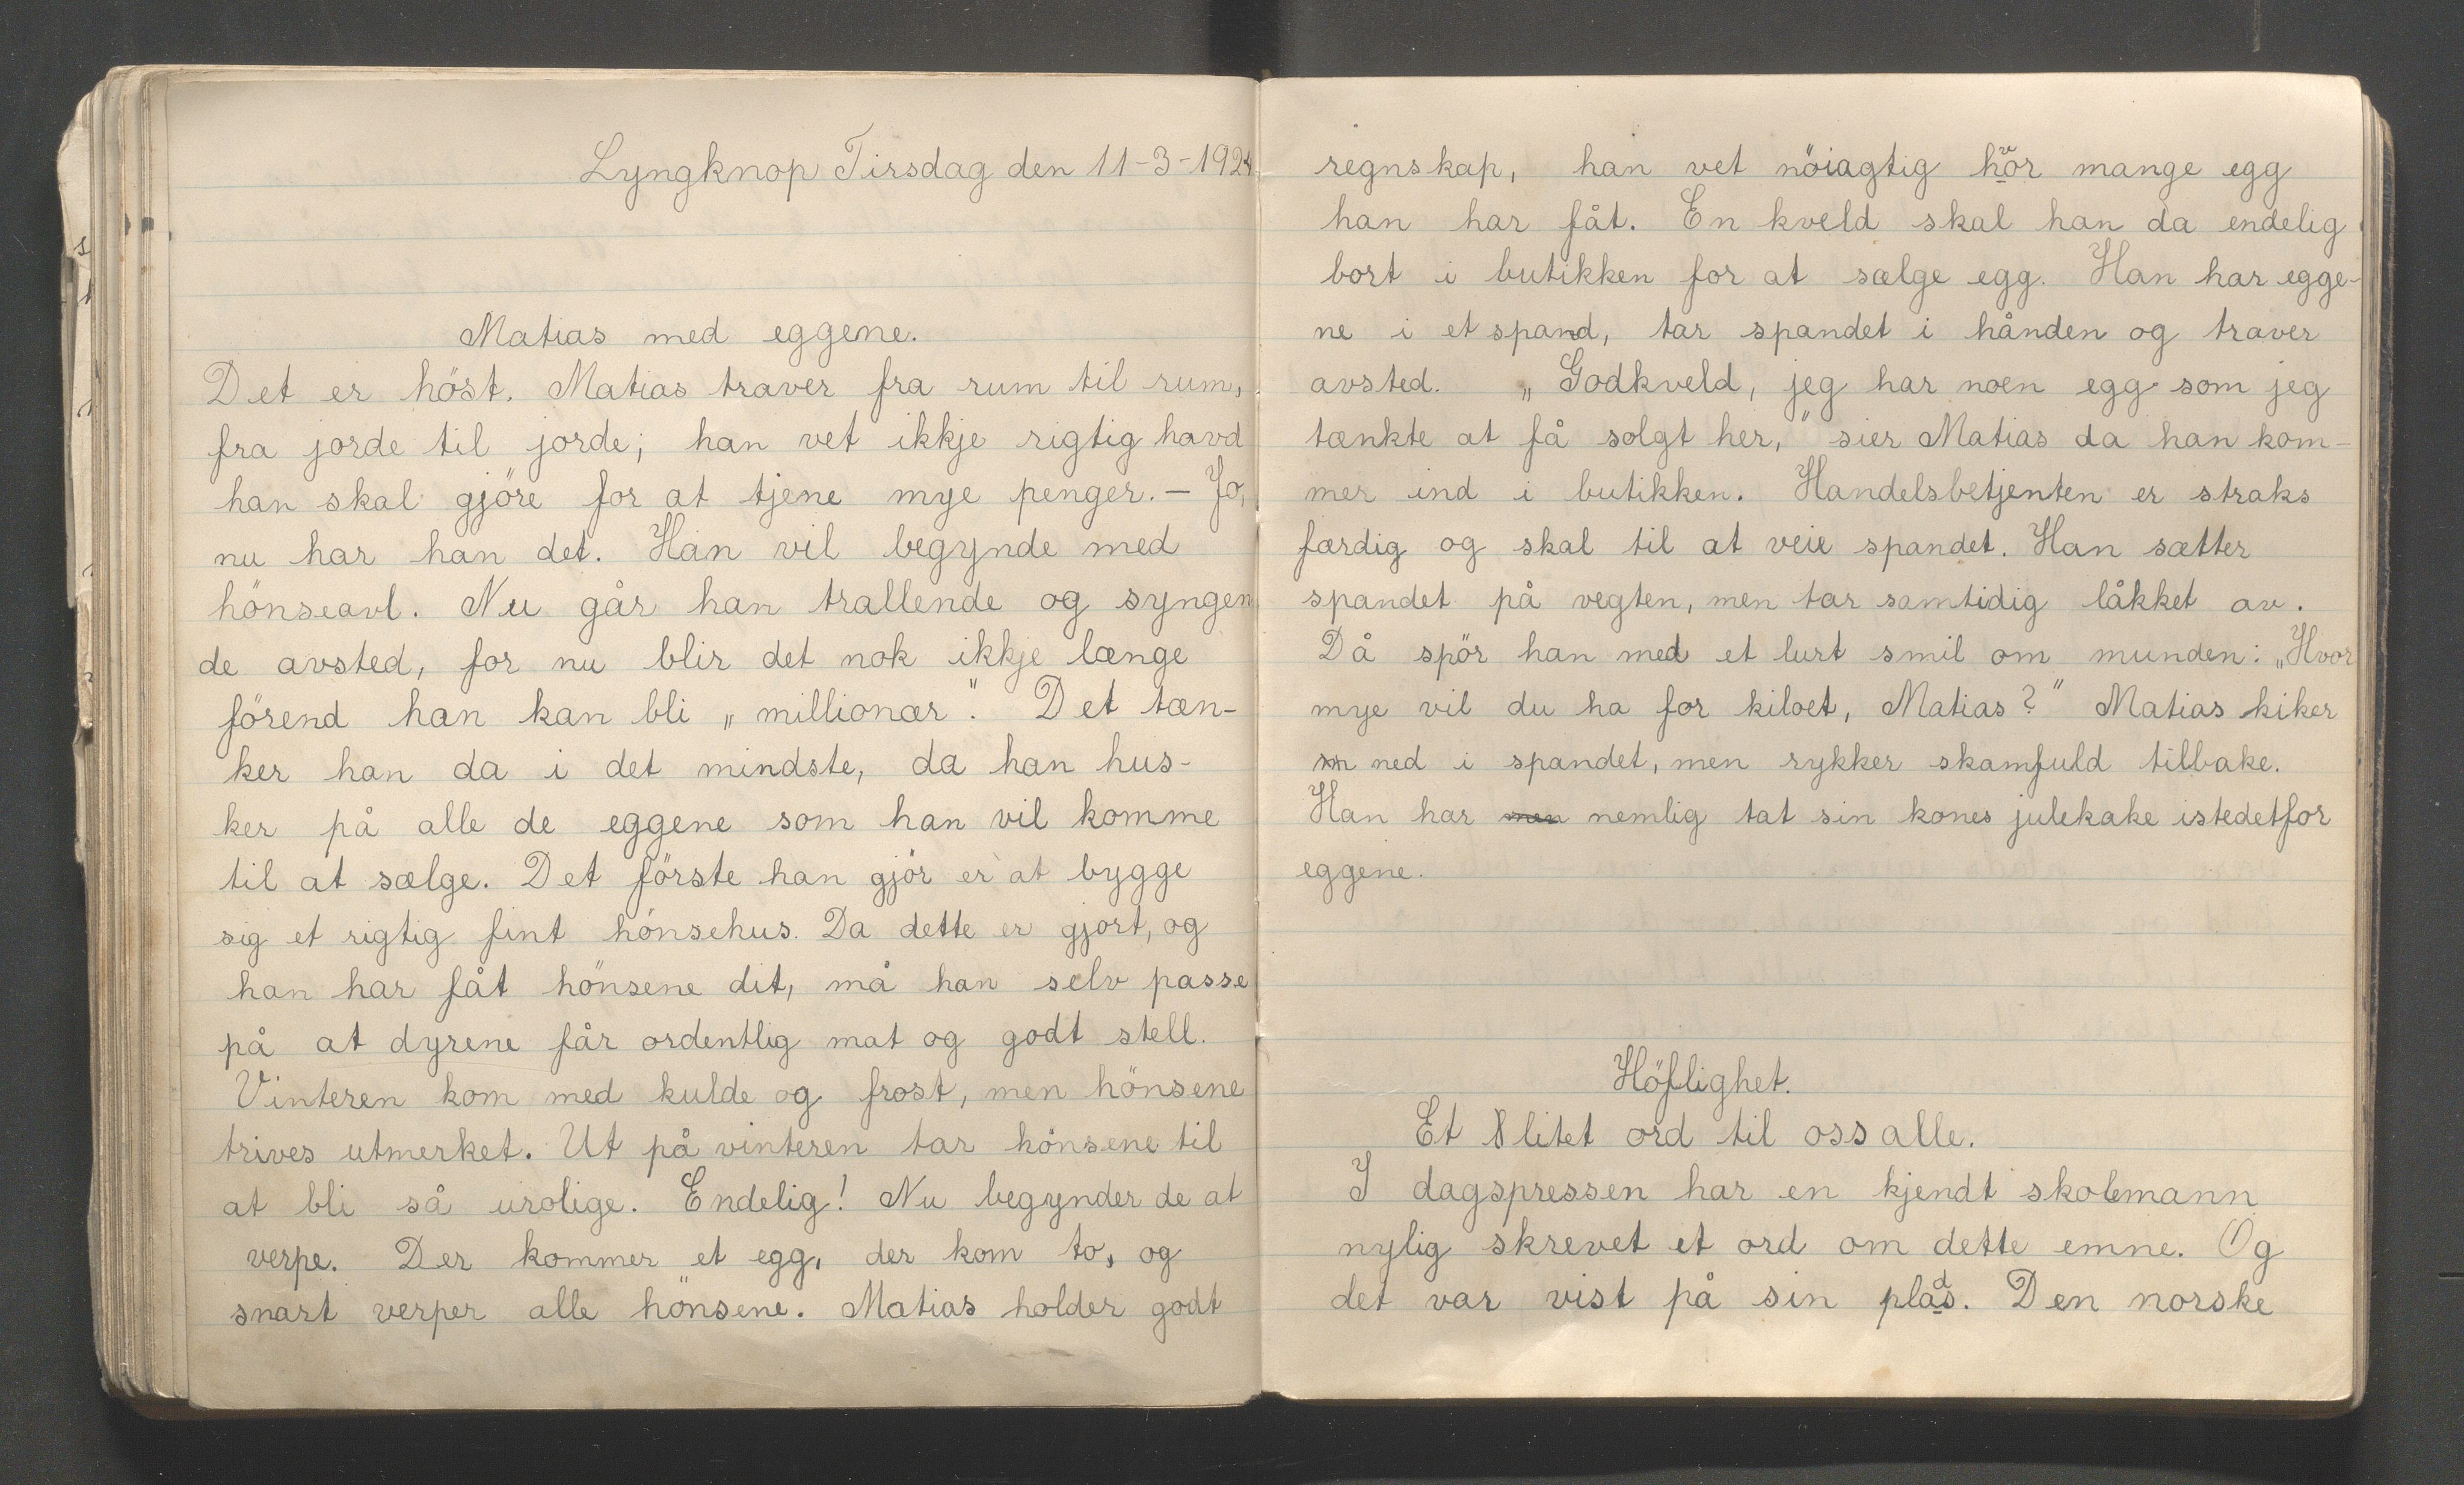 Lyngknop Tirsdag den 11-3-1924
Matias med eggene.
Det er höst. Matias traver fra rum til rum,
fra jorde til jorde; han vet ikkje rigtig havd
han skal gjöre for at tjene mye penger. — Jo,
nu har han det. Han vil begynde med
hönseavl. Nu går han trallende og syngen
de avsted, for nu blir det nok ikkje længe
förend han kan bli „millionær". Det tæn-
ker han da i det mindste, da han hus-
ker på alle de eggene som han vil komme
til at sælge. Det förste han gjör er at bygge
sig et rigtig fint hönsehus. Da dette er gjort, og
han har fåt hönsene dit, må han selv passe
på at dyrene får ordentlig mat og godt stell.
Vinteren kom med kulde og frost, men hönsene
trives utmerket. Ut på vinteren tar hönsene til
at bli så urolige. Endelig! Nu begynder de at
verpe. Der kommer et egg, der kom to, og
snart verper alle hönsene. Matias holder godt
regnskap, han vet nöiagtig hvor mange egg
han har fåt. En kveld skal han da endelig
bort i butikken for at sælge egg. Han har egge-
ne i et spand, tar spandet i hånden og traver
avsted. „Godkveld, jeg har noen egg som jeg
tænkte at få solgt her," sier Matias da han kom-
mer ind i butikken. Handelsbetjenten er straks
færdig og skal til at veie spandet. Han sætter
spandet på vegten, men tar samtidig låkket av.
Då spör han med et lurt smil om munden: „Hvor
mye vil du ha for kiloet, Matias?" Matias kiker
ned i spandet, men rykker skamfuld tilbake.
Han har men nemlig tat sin kones julekake istedetfor
eggene.
Höflighet.
Et litet ord til oss alle.
I dagspressen har en kjendt skolemann
nylig skrevet et ord om dette emne. Og
det var vist på sin plads. Den norske